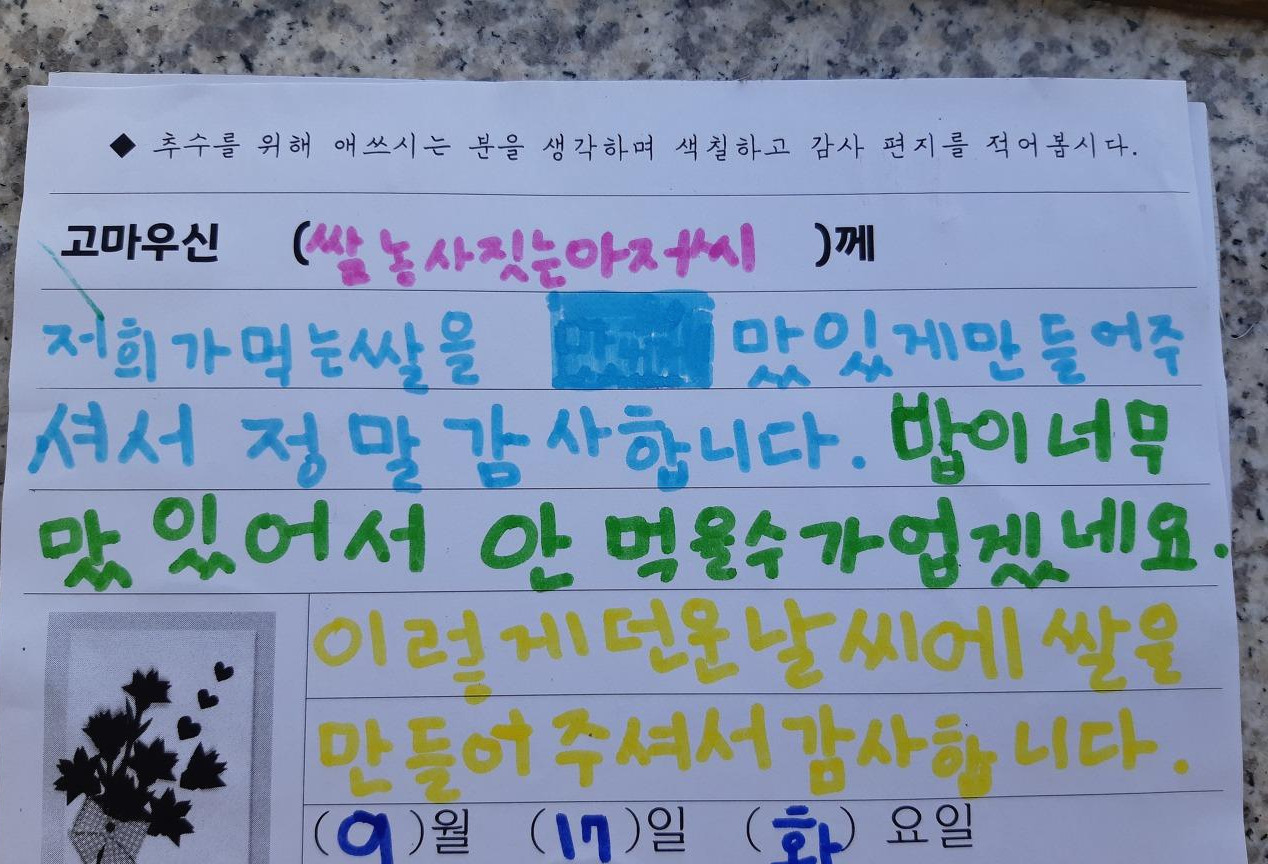 ◆ 추수를 위해 애쓰시는 분을 생각하며 색칠하고 감사 편지를 적어봅시다.
고마우신 (쌀 농사짓는아저씨 )께
저희가먹는쌀을 맛있게만들어주
셔서 정말감사합니다. 밥이너무
맛있어서 안먹을수가업겠네요.
이렇게던운날씨에쌀을
만들어주셔서감사합니다.
(9)월 (17)일 (화) 요일